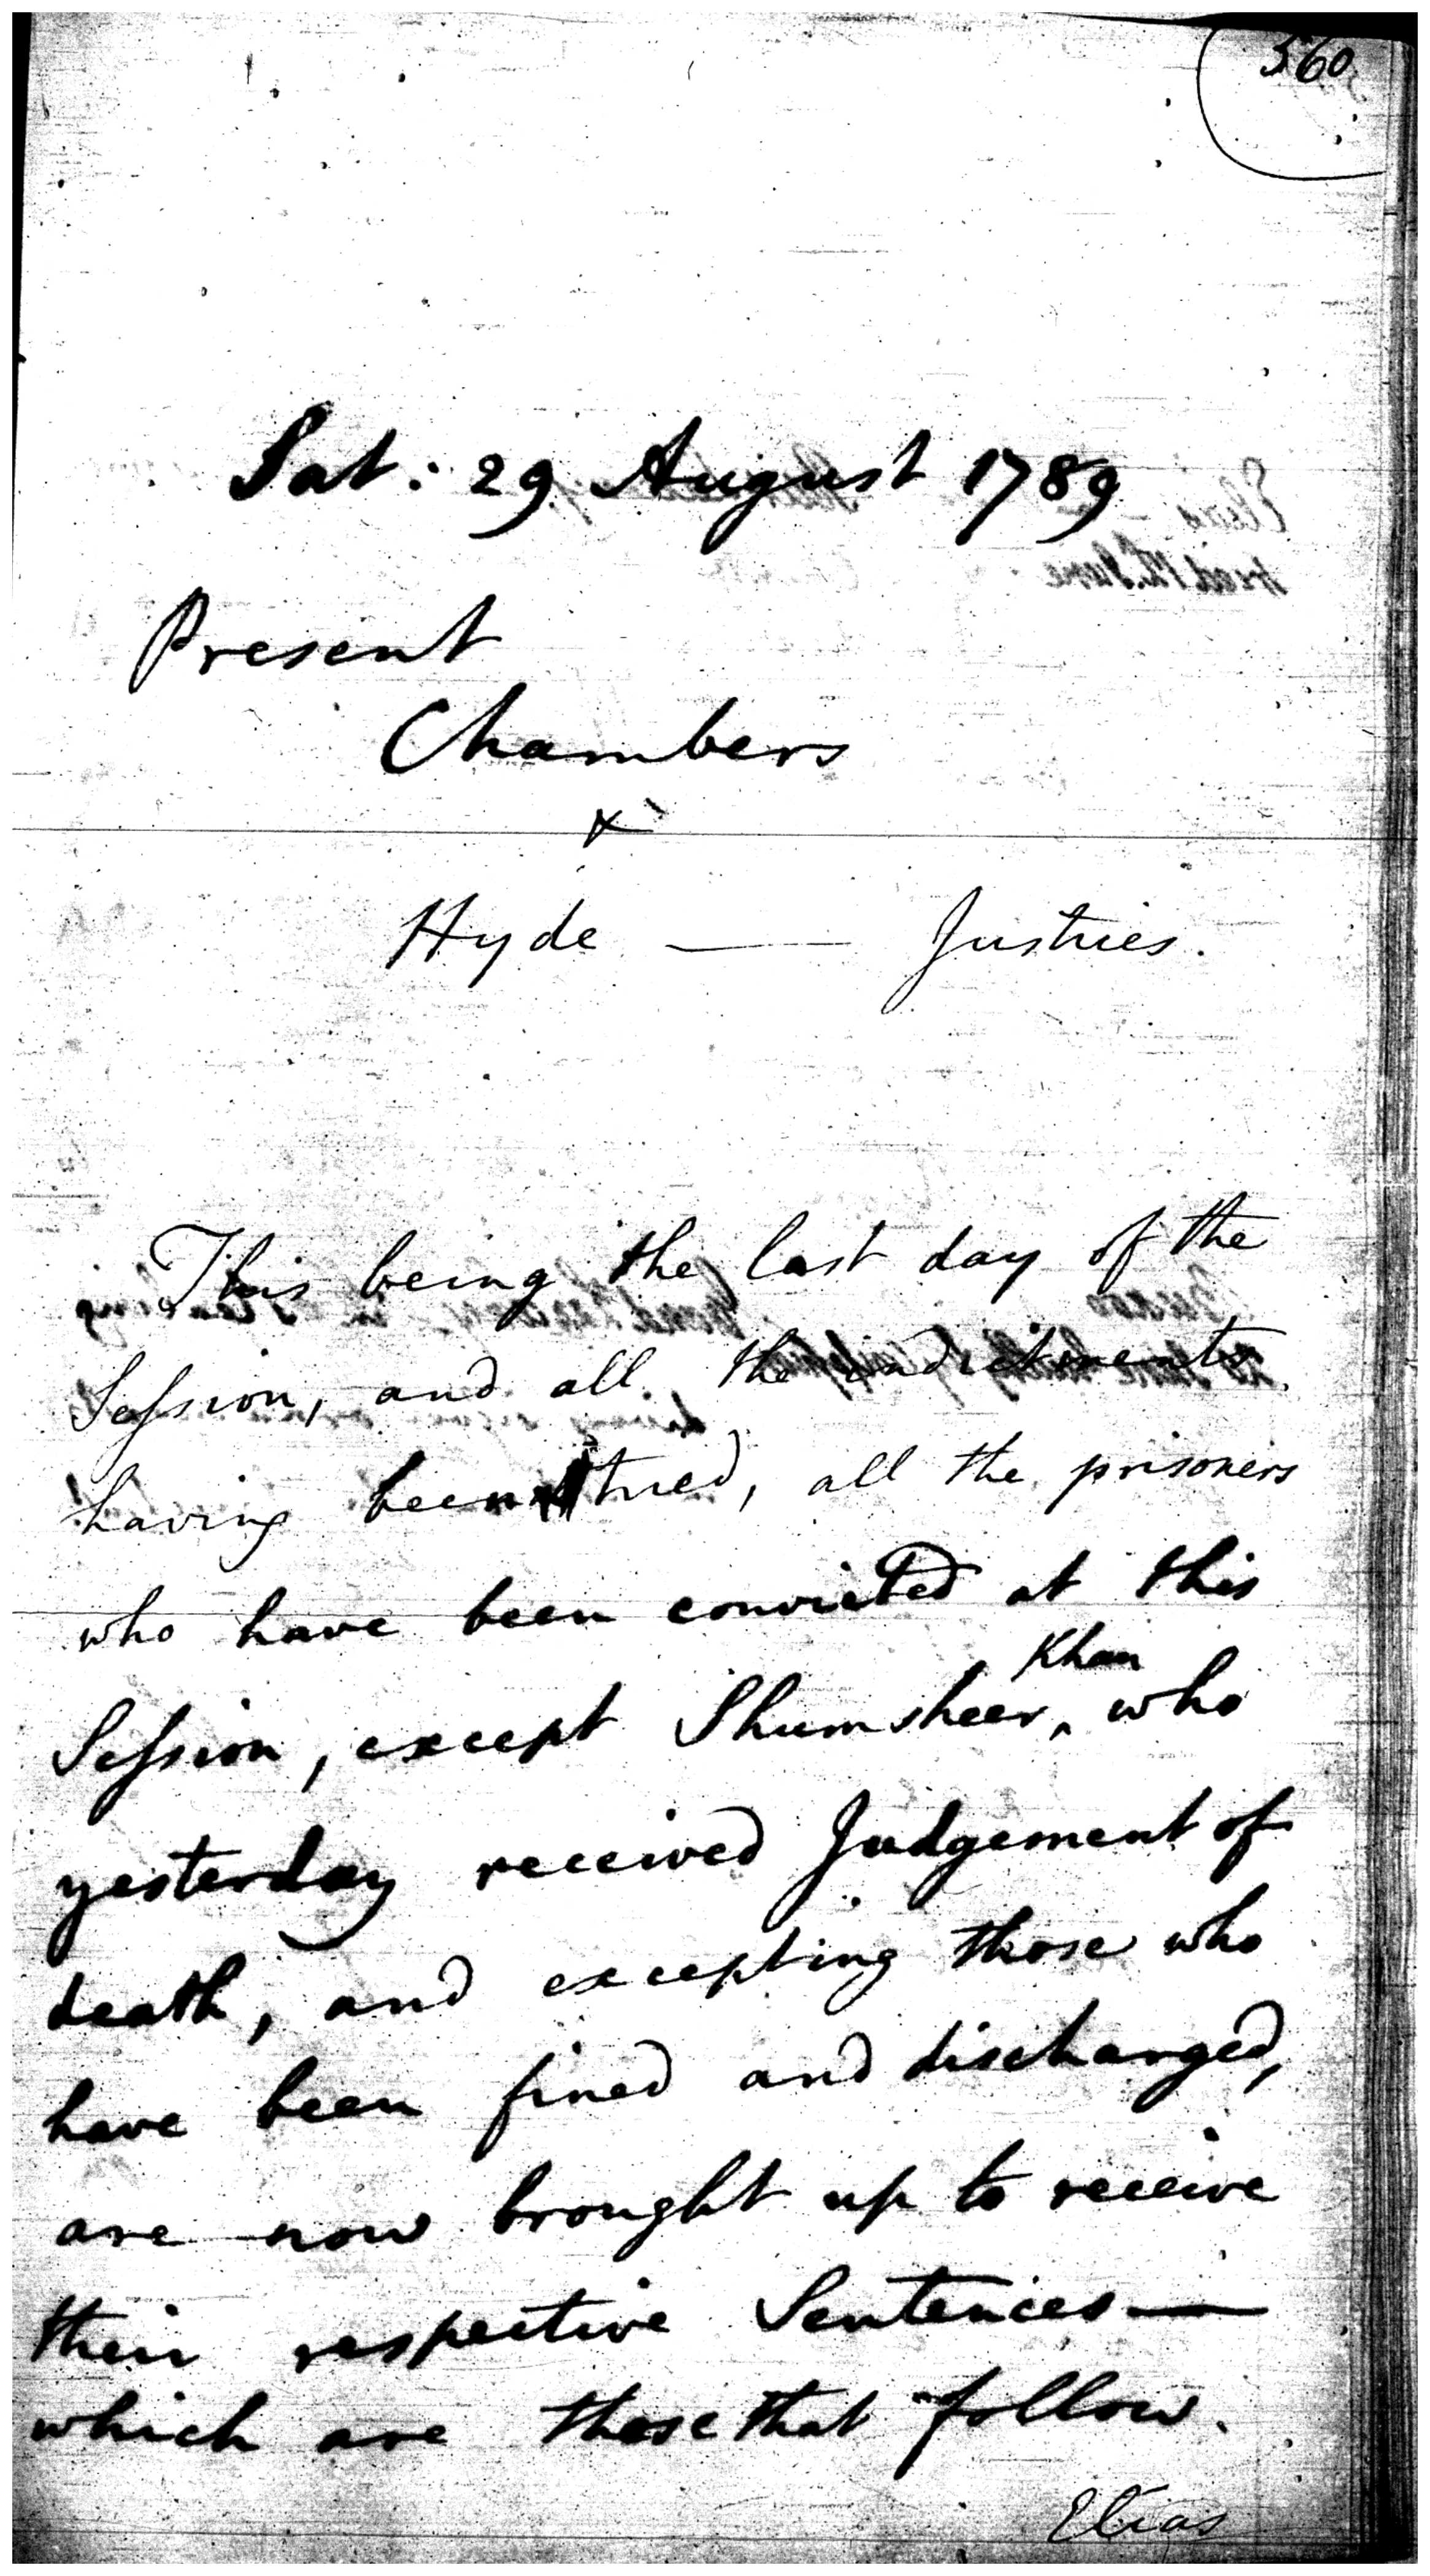 560
Sat: 29 August 1789
Present
Chambers
&
Hyde — Justices.
This being the last day of the
Session, and all the indictments
having been tried, all the prisoners
who have been convicted at this
Khan
Session, except Shumsheer, who
yesterday received Judgement of
death, and excepting those who
have been fined and discharged,
are now brought up to receive
their respective Sentences—
which are these that follow.
Elias